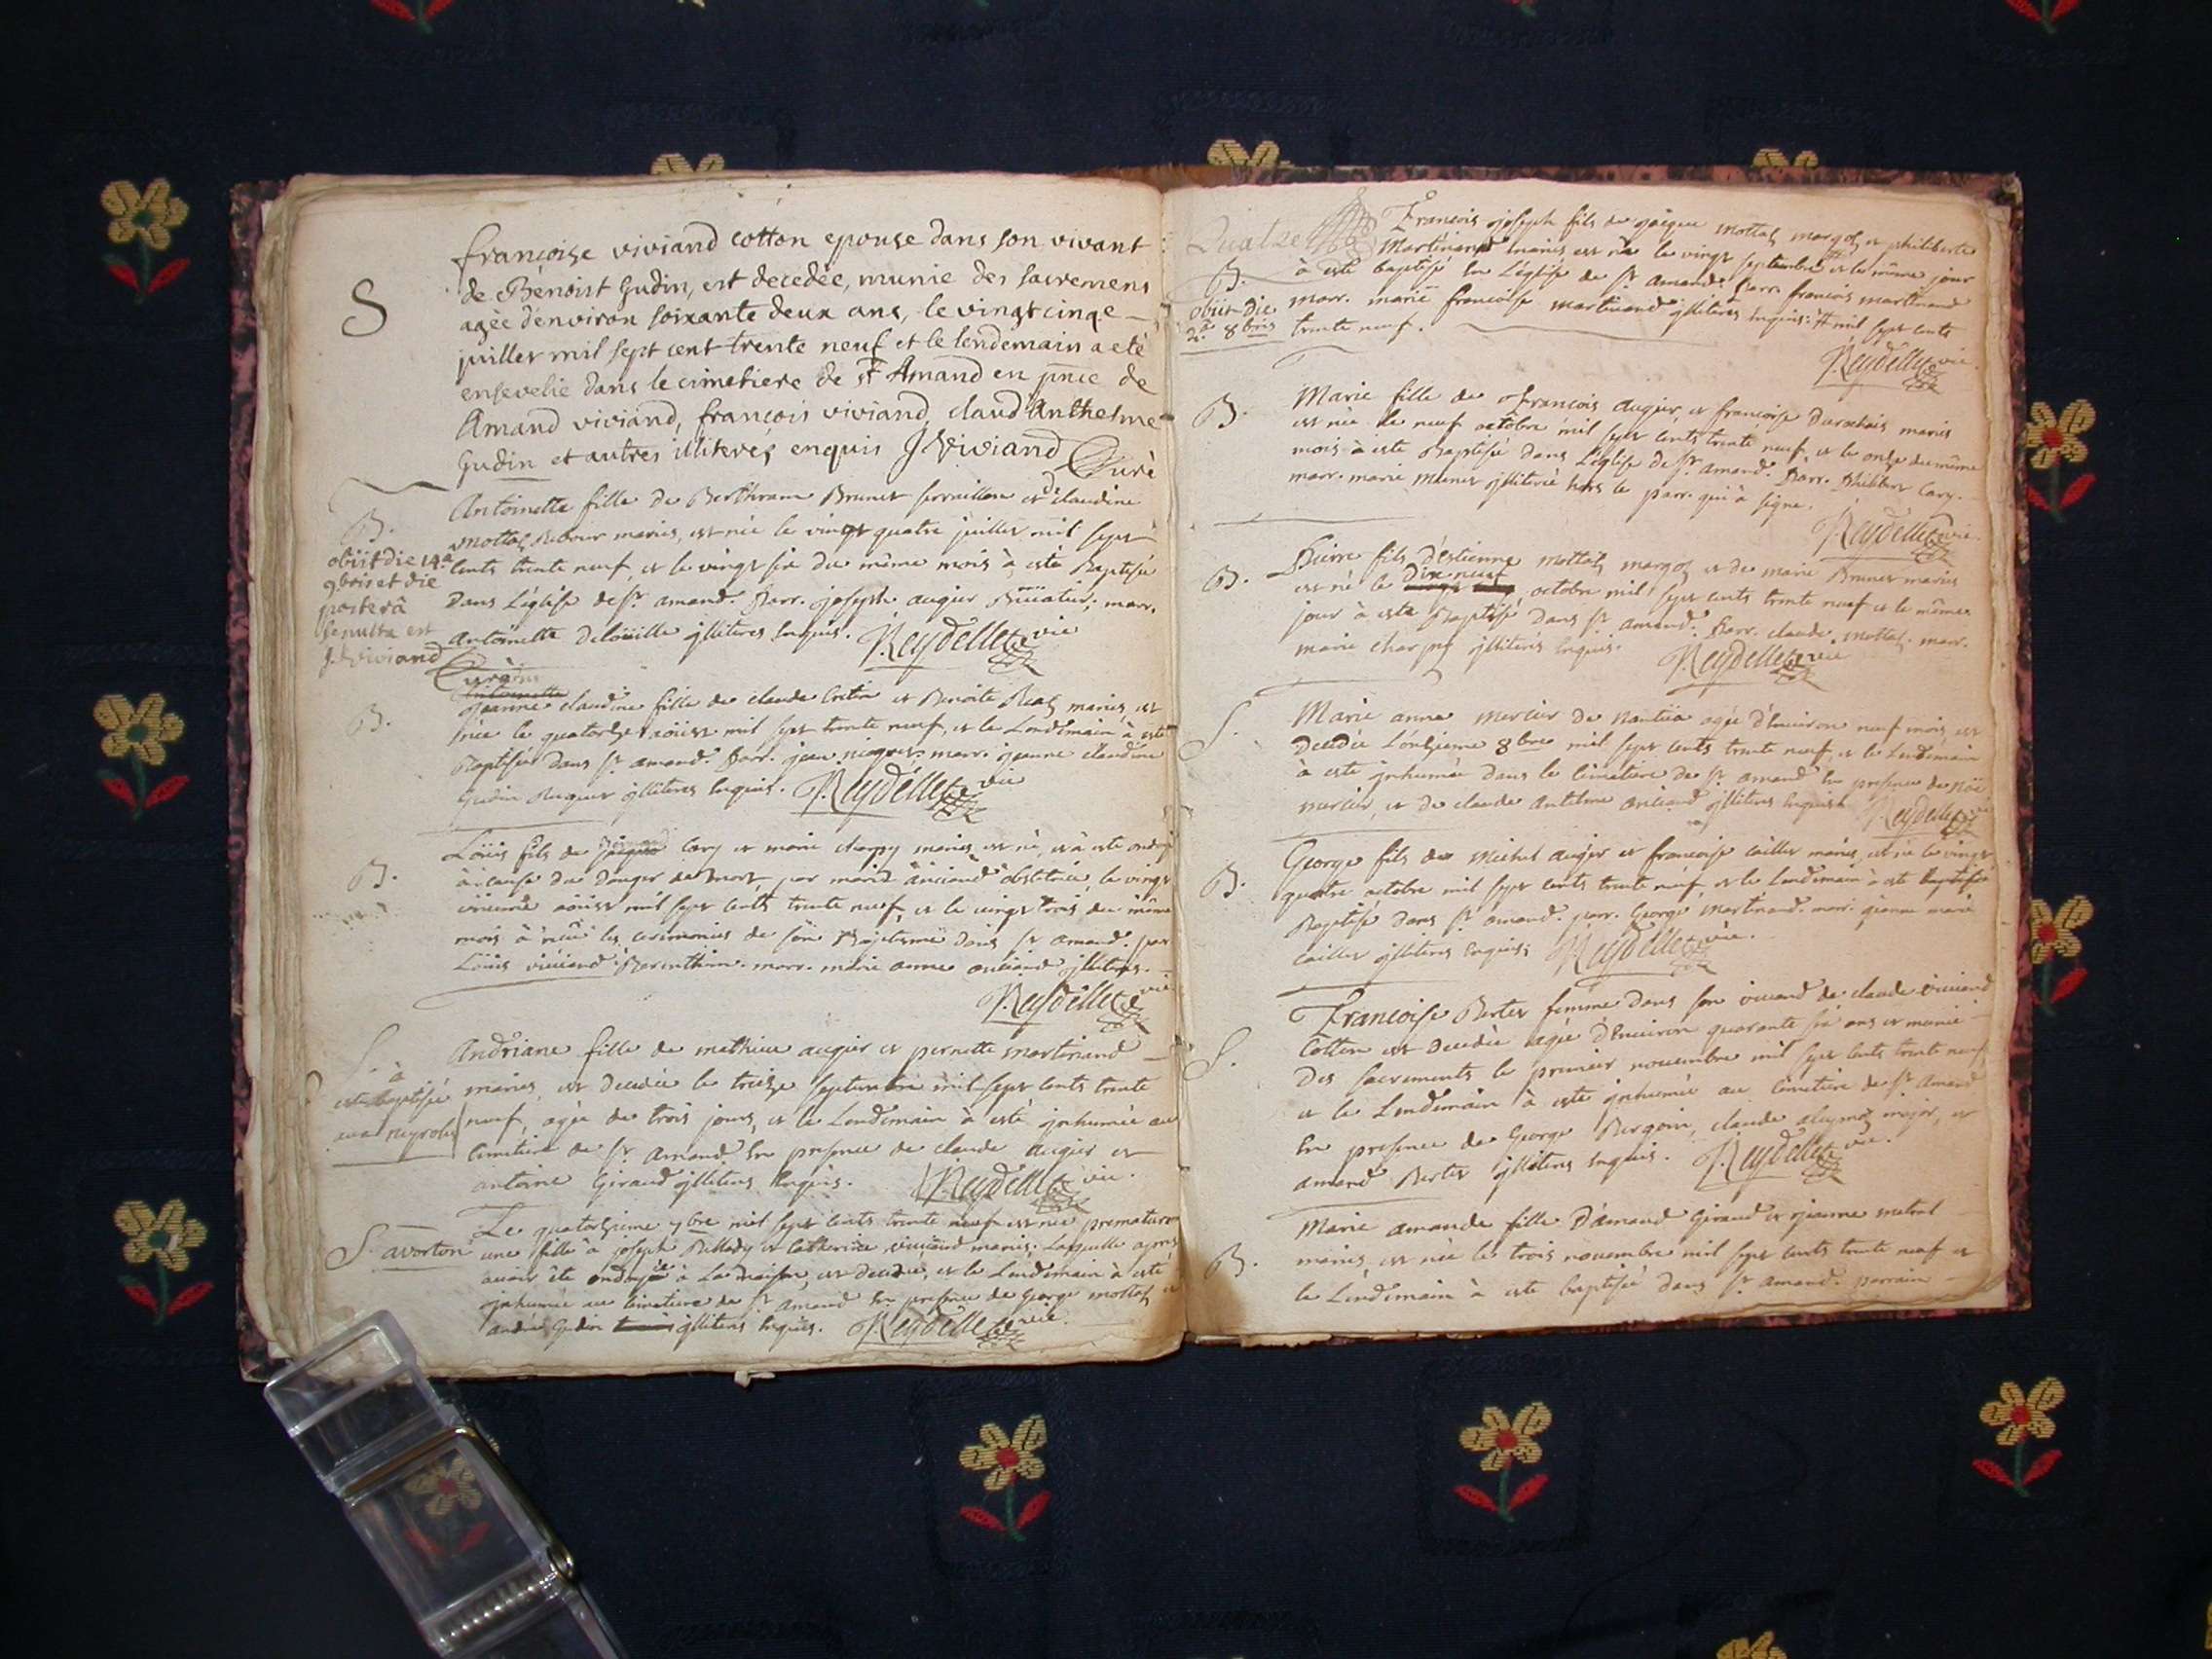 françoise viviand cotton epouse dans son vivant
S
de Benoist Gudin, est decedée, munie des sacremens
agée d'environ soixante deux ans, le vingt cinqe
juillet mil sept cent trente neuf et le lendemain a eté
ensevelie dans le cimetiere de st Amand en pnce de
Amand viviand, françois viviand, claud Anthelme
Gudin et autres illiterés enquis J. Viviand Curè
B.
obiit die 14a
9bris et die
posterâ
sepulta est
J. Viviand
Curè
Antoinette fille de Berthram Brunet et claudine
mottaz mariés, est née le vingt quatre juillet mil sept
cents trente neuf, et le vingt six du même mois à esté Baptisée
Dans L'église de st amand. Parr. joseph augier marr.
antoinette jlliteres Enquis. Reydellet vic
B.
Antoinette
jeanne claudine fille de claude et Benoite mariés, est
née le quatorze aoust mil sept trente neuf, et le Lendemain à esté
Baptisée Dans st amand. Parr. jean marr. jeanne claudine
Gudin jlliteres Enquis. Reydellet vic
B.
Loüis fils de Cary et marie charpy mariés est né, et à esté ondoyé
à cause du danger de mort par marie obstetrice, le vingt
aoust mil sept cents trente neuf, et le vingt trois du même
mois à les ceremonies de son Baptesme dans st amand. par
Loüis viviand marr. marie anne jlliteres.
Reydellet vic
S. à
esté baptisée
neyrole
Andriane fille de mathieu augier et pernette martinand
mariés, est decedée le treize septembre mil sept cents trente
neuf, agée de trois jours, et le Lendemain à esté jnhumée au
cimetiere de st amand En presence de claude augier et
antoine Giraud jlliteres Enquis. Reydellet vic.
S. avorton
Le quatorzieme 7bre mil sept cents trente neuf est née
une fille à joseph et Catherine viviand mariés. Laquelle après
avoir été ondoyée à La maison, est decedée, et le Lendemain à esté
jnhumée au cimetiere de st amand En presence de George mottaz et
andré Gudin jlliteres Enquis. Reydellet vic.
Quatre
B.
obiit die
2a 8bris
François joseph fils de jacque mottaz margoz et philiberte
Martinand mariés est né le vingt septembre # et le même jour
à esté baptisé En L'église de st amand. Parr. françois martinand
marr. marie françoise martinand jlliteres Enquis: # mil sept cents
trente neuf.
Reydellet vic.
B.
Marie fille de françois augier et françoise mariés
est née le neuf octobre mil sept cents trente neuf, et le onze du même
mois à esté Baptisée dans L'église de st amand. Parr. Philibert Cary.
marr. marie jlliterés hors le parr. qui à signé.
Reydellet vic.
B.
Pierre fils d'estienne mottaz margoz et de marie Brunet mariés
est né le Dix neuf octobre mil sept cents trente neuf et le même
jour à esté Baptisé Dans st amand. Parr. claude mottaz. marr.
marie charpy jlliterés Enquis. Reydellet vic
S.
Marie anne mercier de Nantua agée d'Environ neuf mois, est
Decedée L'onzieme 8bre mil sept cents trente neuf, et le Lendemain
à esté jnhumée dans le cimetiere de st amand En presence de
mercier, et de claude antelme jlliteres Enquis Reydellet vic
B.
George fils de Michel augier et françoise caillet mariés, est né le vingt
quatre octobre mil sept cents trente neuf, et le Lendemain à esté
Baptisé dans st amand. parr. George Martinand. marr. jeanne marie
caillet jlliteres Enquis; Reydellet vic.
S.
Françoise Bertet femme dans son vivand de claude viviand
Cotton est decedée agée d'Environ quarante six ans et munie
Des sacrements le premier novembre mil sept cents trente neuf
et le Lendemain à esté jnhumée au cimetiere de st amand
En presence de George Bergoin, claude major, et
amand Bertet jlliteres Enquis. Reydellet vic.
B.
Marie amande fille D'amand Giraud et jeanne metral
mariés, est née le trois novembre mil sept cents trente neuf et
le Lendemain à esté baptisée dans st amand. parrain